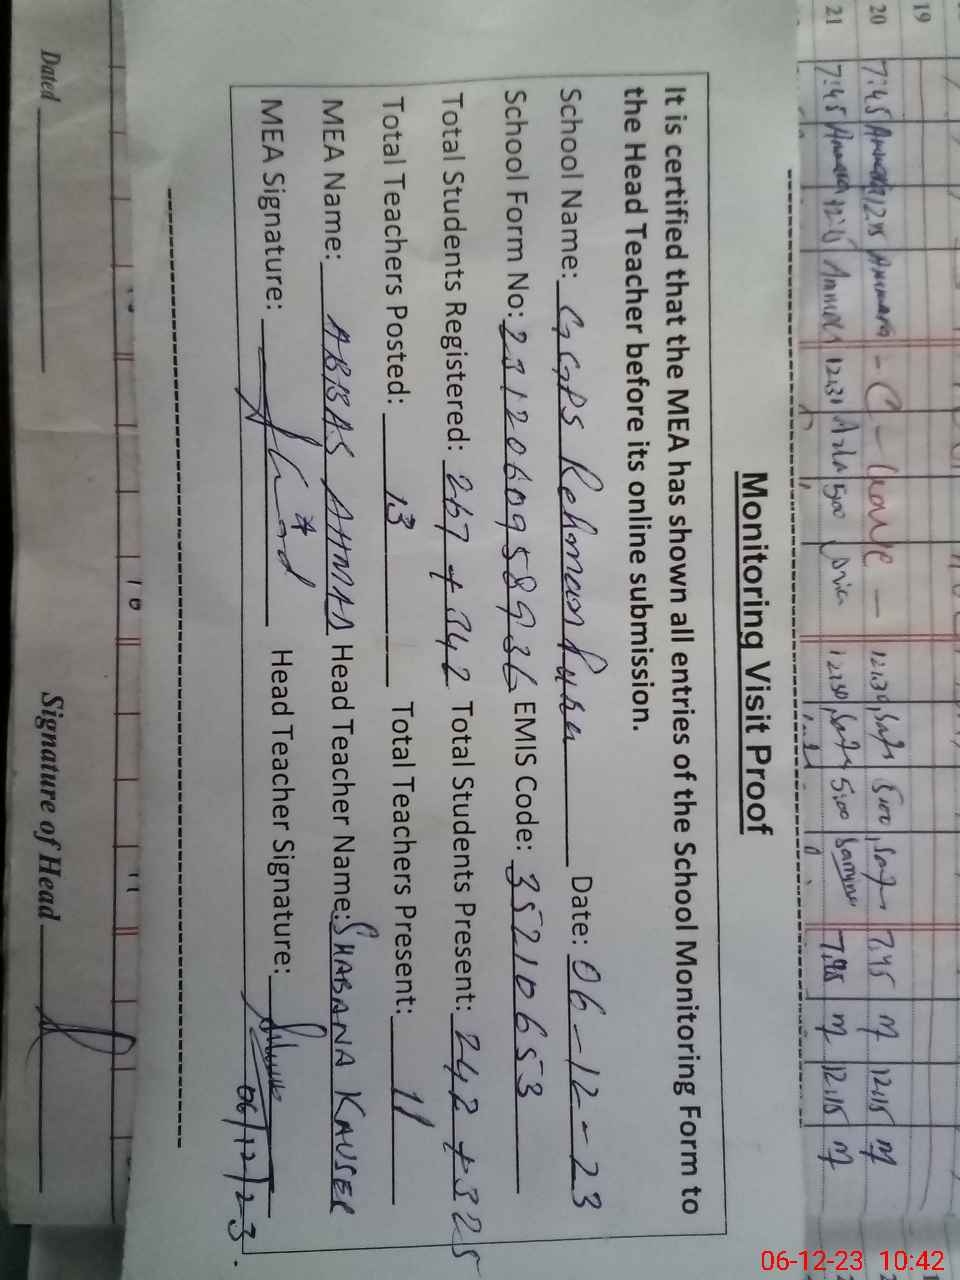 19
20 7:45 12:15 - C - leave - 12:30 5:00 7:45 M 12:15 M
21 7:45 12:15 12:30 5:00 12:30 5:00 7:45 M 12:15 M
Monitoring Visit Proof
It is certified that the MEA has shown all entries of the School Monitoring Form to
the Head Teacher before its online submission.
School Name: GGPS Rehman Pura Date: 06-12-23
School Form No: 2312060958936 EMIS Code: 35210653
Total Students Registered: 267 + 342 Total Students Present: 242 + 325
Total Teachers Posted: 13 Total Teachers Present: 11
MEA Name: ABBAS AHMAD Head Teacher Name: SHABANA KAUSER
MEA Signature: Head Teacher Signature:
06/12/23.
Dated Signature of Head
06-12-23 10:42